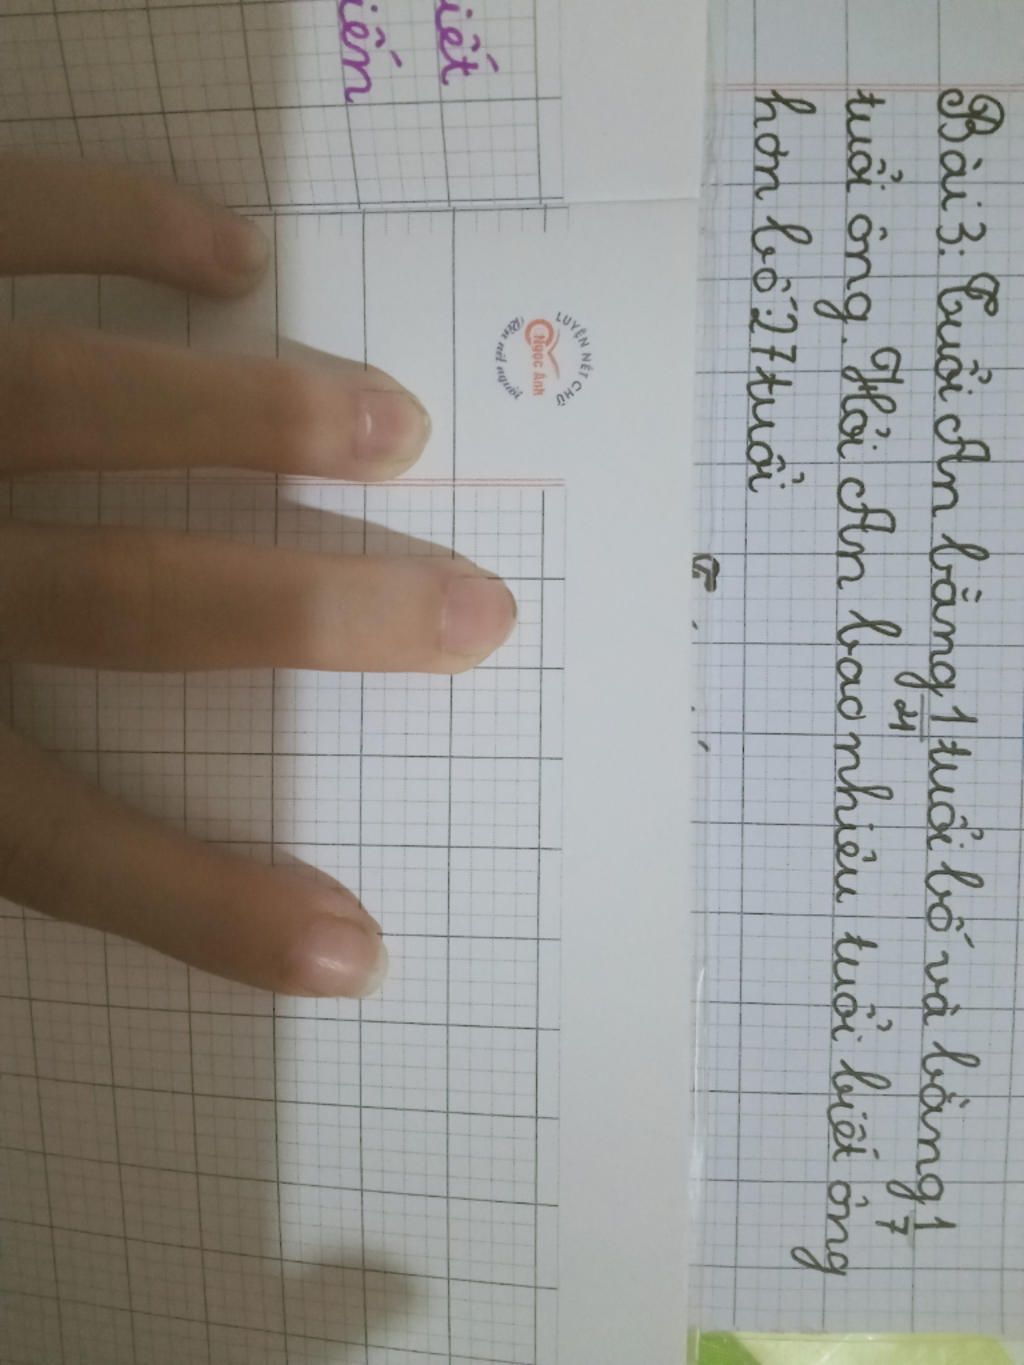 Bài 3: Tuổi An bằng 1/4 tuổi bố và bằng 1/7
tuổi ông. Hỏi An bao nhiêu tuổi biết ông
hơn bố 27 tuổi
iết
iến
LUYỆN NÉT CHỮ
Ngọc Ánh
Rèn nét người